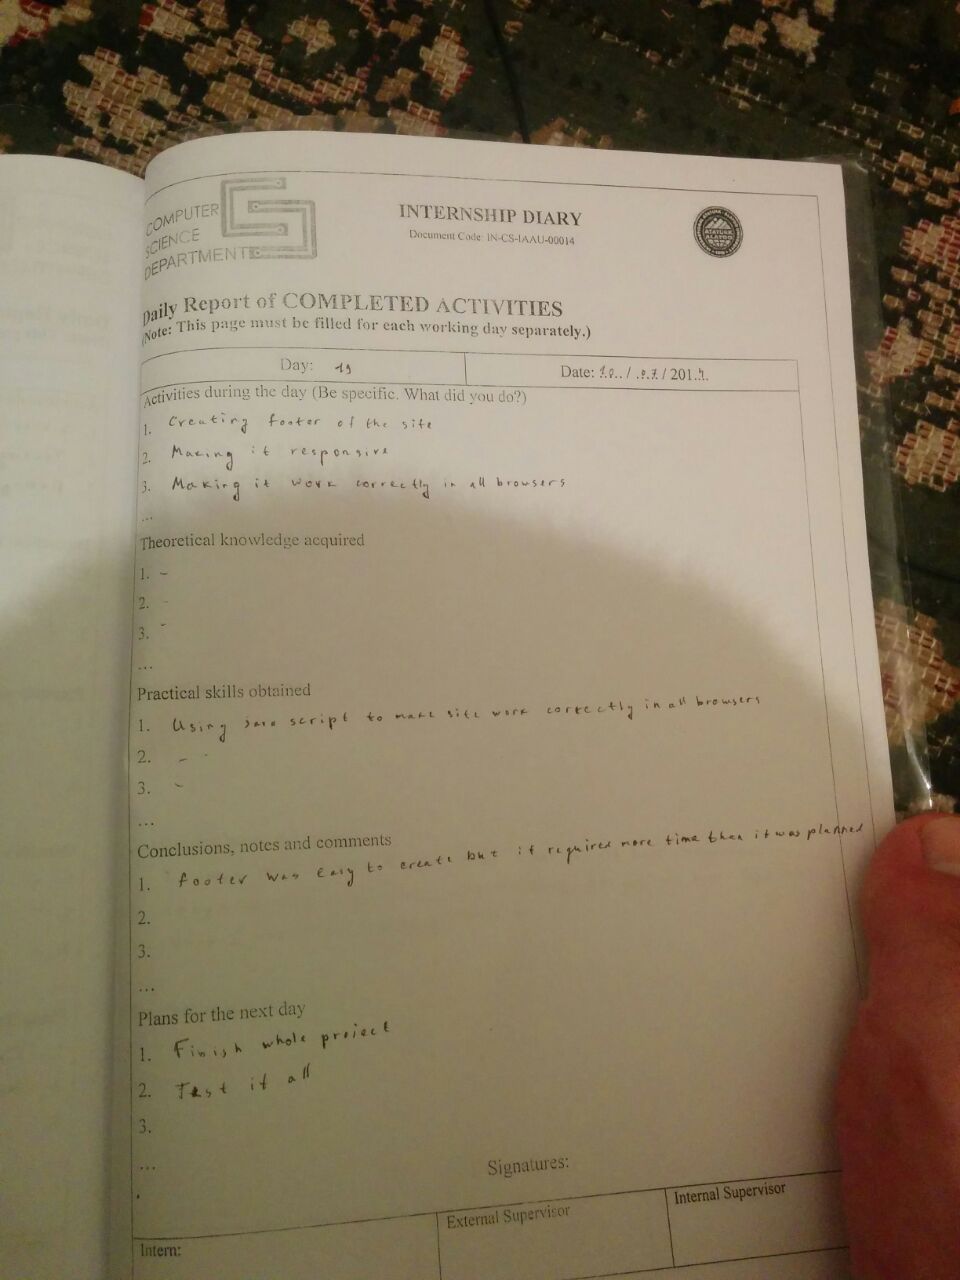 COMPUTER
SCIENCE
DEPARTMENT
INTERNSHIP DIARY
Document Code: IN-CS-IAAU-00014
ATATURK
ALATOO
Daily Report of COMPLETED ACTIVITIES
(Note: This page must be filled for each working day separately.)
Day: 19
Date: / .0.7 / 201
Activities during the day (Be specific. What did you do?)
1. Creating footer of the site
2. Making it responsive
3. Making it work correctly in all browsers
...
Theoretical knowledge acquired
1. -
2. -
3. -
...
Practical skills obtained
1. Using java script to make site work correctly in all browsers
2. -
3. -
...
Conclusions, notes and comments
1. footer was easy to create but it required more time then it was planned
2.
3.
...
Plans for the next day
1. Finish whole project
2. Test it all
3.
...
Signatures:
Intern:
External Supervisor
Internal Supervisor